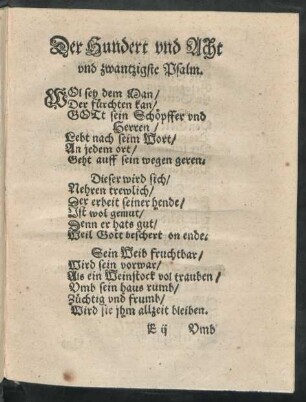 Der Hundert vnd Acht
vnd zwantzigste Psalm.
WOl sey dem Man/
Der fürchten kan/
GOTt sein Schöpffer vnd
Herren/
Lebt nach seim Wort/
An jedem ort/
Geht auff sein wegen geren.
Dieser wird sich/
Nehren trewlich/
Der erbeit seiner hende/
Ist wol gemut/
Denn er hats gut/
Weil Gott beschert on ende.
Sein Weib fruchtbar/
Wird sein vorwar/
Als ein Weinstock vol trauben/
Vmb sein haus rumb/
Züchtig vnd frumb/
Wird sie jhm allzeit bleiben.
E ij Vmb